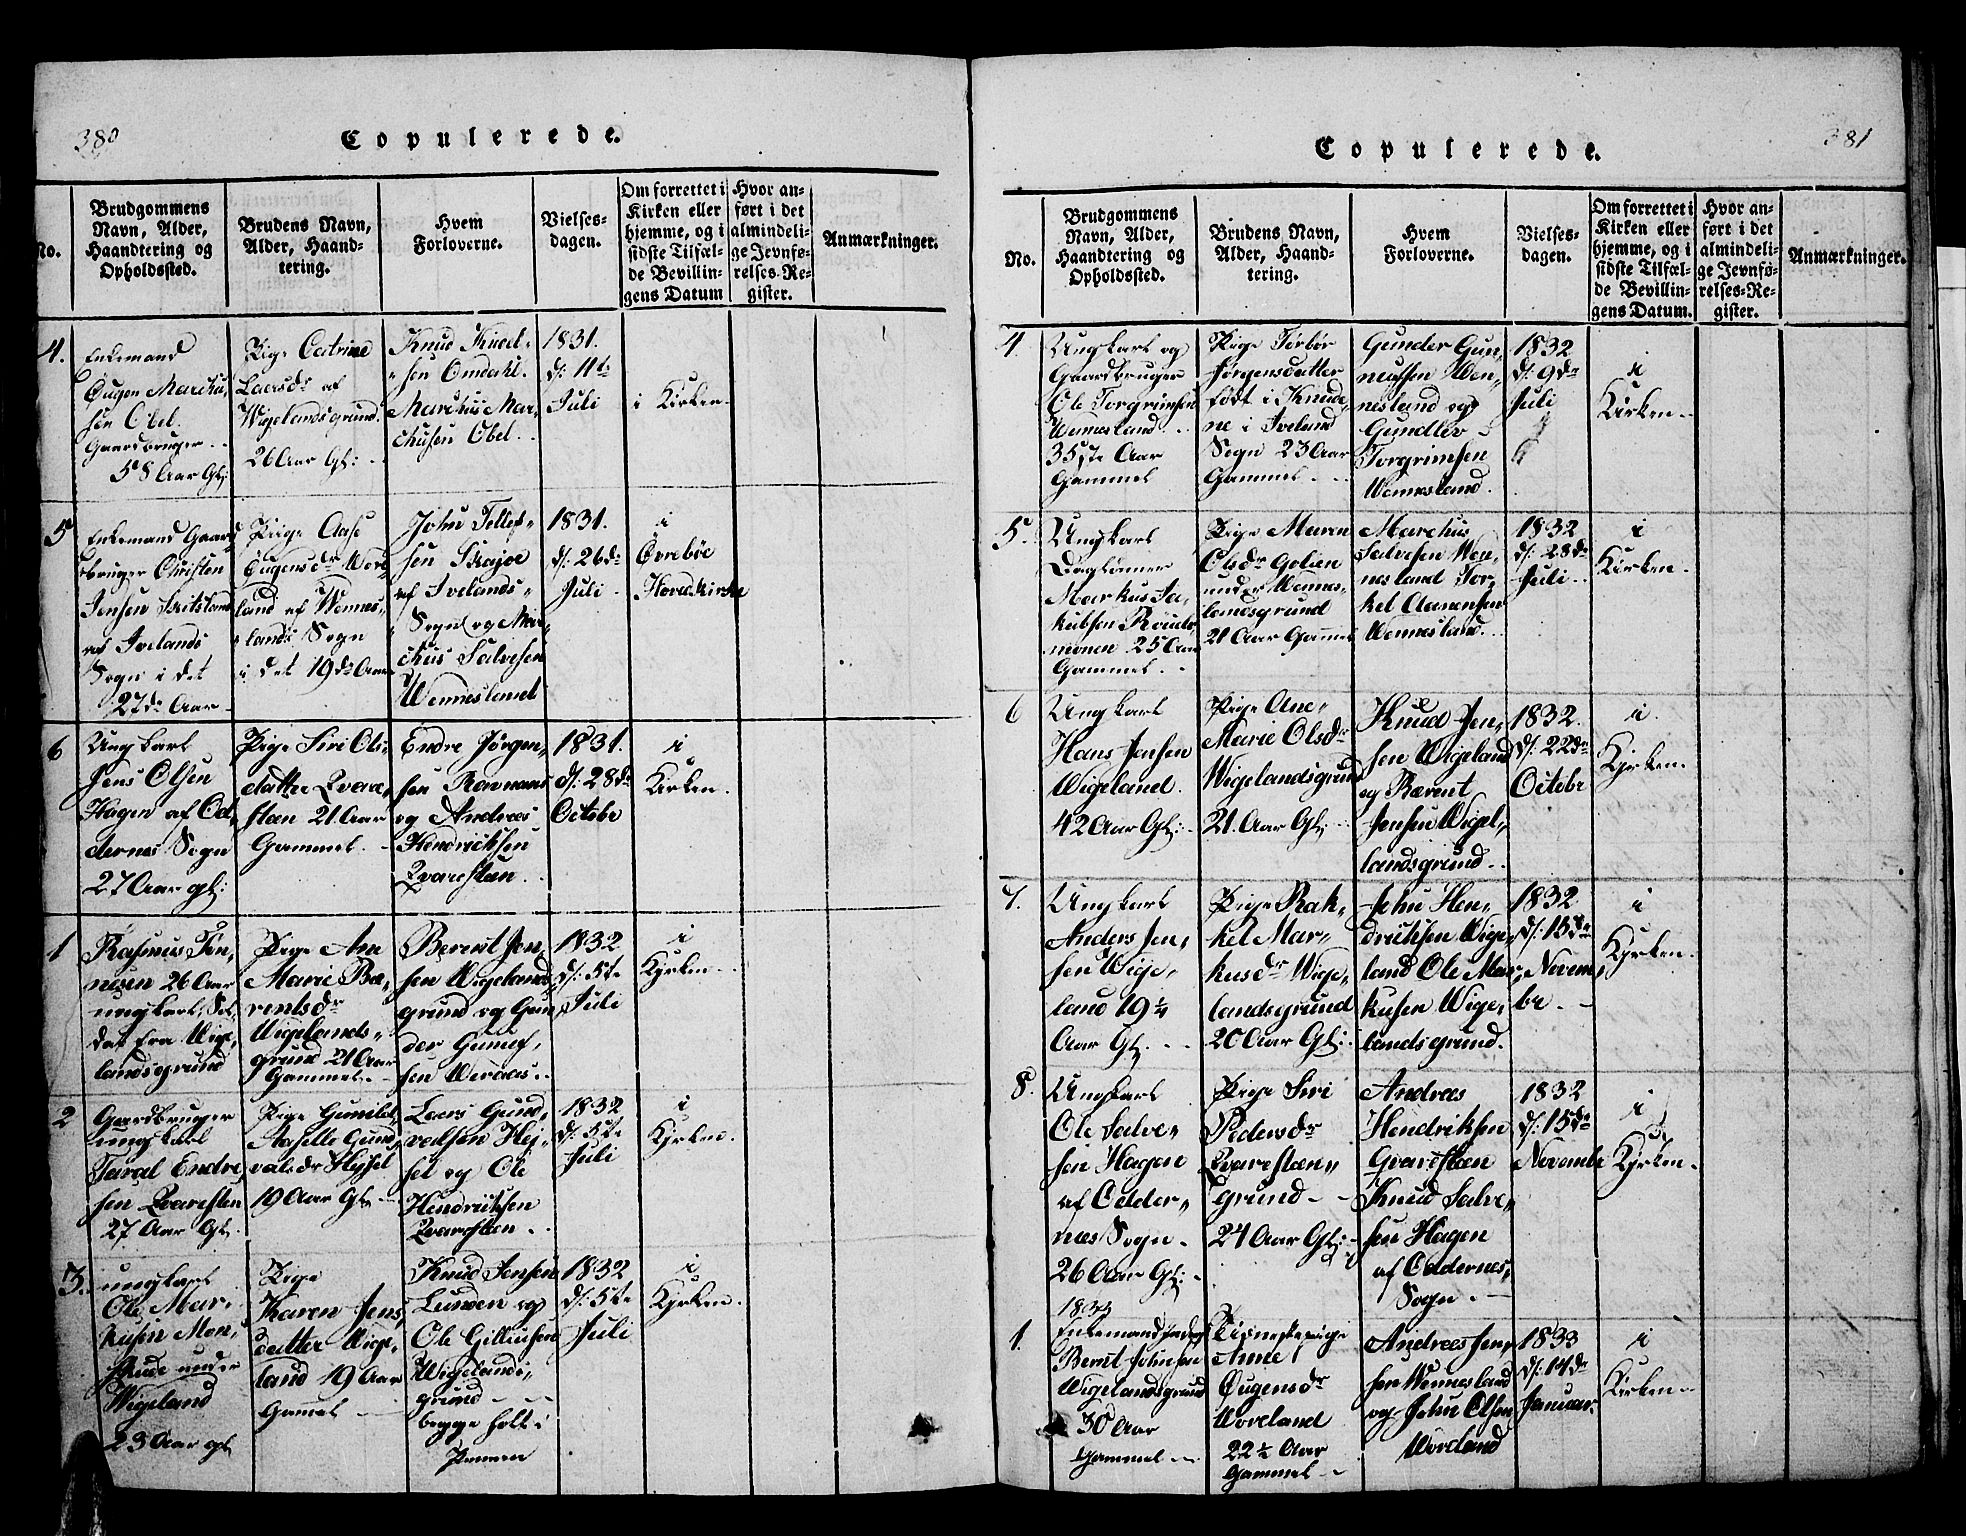 380
Copulerede.
No.
Brudgommens
Navn, Alder,
Haandtering og
Opholdssted.
Brudens Navn,
Alder, Haand-
tering.
Hvem
Forloverne.
Vielses-
dagen.
Om forrettet i
Kirken eller
hjemme, og i
sidste Tilfæl-
de Bevillin-
gens Datum
Hvor an-
ført i det
almindeli-
ge Jevnfø-
relses-Re-
gister.
Anmærkninger.
4.
Enkemand
Øugen Marchu-
sen Obel.
Gaardbruger
58 Aar Gl:
Pige Catrine
Laersdr af
Wigelandsgrund
26 Aar Gl:
Knud Knud-
sen Omdahl.
Marchus Mar-
chusen Obel.
1831.
d: 11te
Juli
i Kirken
5
Enkemand Gaard
bruger Christen
Jensen
af Ivelands
Sogn i det
27de Aar
Pige Aase
Øugensdr Wore-
land af Wennes-
lands Sogn
i det 19de Aar
John Tellef-
sen Skajoe
af Ivelands
Sogn og Mar-
chus Salvesen
Wennesland
1831.
d: 26de
Juli
i
Øvrebøe
Hoved Kirke
6
Ungkarl
Jens Olsen
Hagen af Od-
dernes Sogn
27 Aar gl:
Pige Siri Ols-
datter Qvare-
stæn 21 Aar
Gammel
Endre Jørgen-
sen Ravnaas
og Andreas
Hendrichsen
Qvarestæn
1831.
d: 28de
Octobr
i
Kirken
1
Rasmus Tøn-
nesen 26 Aar
ungkarl, Sol-
dat fra Wige-
landsgrund
Pige Ane
Marie Bæ-
rentsdr
Wigelands-
grund 21 Aar
Gammel
Berent Jen-
sen Wigelands
grund og Gun-
der Guness-
sen Weraas
1832
d: 5te
Juli
i
Kirken
2
Gaardbruger
ungkarl
Taral Endre-
sen Qvaresten
27 Aar Gl:
Pige Gunild
Aaselle Gund-
valsdr Hejsel
19 Aar Gl:
Laers Gund-
valsen Hej-
sel og Ole
Hendriksen
Qvarestæn
1832
d: 5te
Juli
i
Kirken
3.
ungkarl
Ole Mar-
kusen Mon-
under
Wigeland
23 Aar gl
Pige
Karen Jens
datter Wige-
land 19 Aar
Gamel
Knud Jensen
Lunden og
Ole Gilliusen
Wigelands-
grund
begge holt i
Pennen
1832
d: 5te
Juli
i
Kirken
381
Copulerede.
No.
Brudgommens
Navn, Alder,
Haandtering og
Opholdssted.
Brudens Navn,
Alder, Haand-
tering.
Hvem
Forloverne.
Vielses-
dagen.
Om forrettet i
Kirken eller
hjemme, og i
sidste Tilfæl-
de Bevillin-
gens Datum.
Hvor an-
ført i det
almindeli-
ge Jevnfø-
relses-Re-
gister.
Anmærkninger.
4.
Ungkarl og
Gaardbruger
Ole Torgrimsen
Wennesland
35ste Aar
Gammel
Pige Torbør
Jørgensdatter
født i Knude-
ne i Iveland
Sogn 23 Aar
Gammel
Gunder Gun-
nulfsen Wen-
nesland og
Gundlev
Torgrimsen
Wennesland.
1832
d: 9de
Juli
i
Kirken
5.
Ungkarl
Daglønner
Markus Ja-
kobsen
25 Aar
Gammel
Pige Maren
Olsdr Golien
under Wennes-
landsgrund
21 Aar Gammel
Marchus
Salvesen Wen-
nesland Tor-
kel Aanensen
Wennesland.
1832
d: 28de
Juli
i
Kirken
6
Ungkarl
Hans Jensen
Wigeland.
42 Aar Gl:
Pige Ane
Marie Olsdr
Wigelandsgrund
21 Aar Gl:
Knud Jen-
sen Wigeland
og Bærent
Jensen Wige-
landsgrund
1832.
d: 22de
Octobr
i
Kirken
7.
Ungkarl
Anders Jen-
sen Wige-
land 19½
Aar Gl.
Pige Rak-
kel Mar-
kusdr Wige-
landsgrund
20 Aar Gl:
John Hen-
driksen Wige-
land Ole Mar-
kusen Wige-
landsgrund.
1832
d: 15de
Novem-
br
i
Kirken
8.
Ungkarl
Ole Salve-
sen Hagen
af Odder-
næs Sogn
26 Aar Gl:
Pige Siri
Pedersdr
Qvarestæn-
grund
24 Aar Gl:
Andreas
Hendriksen
Qvarestæn
Knud Salve-
sen Hagen
af Oddernes
Sogn.
1832
d: 15de
Novembr
i
Kirken
1833
1.
Enkemand
Bernt Johnsen
Wigelandsgrund
30 Aar
Gammel
Anne
Øugensdr
Woreland
22½ Aar
Gammel
Andreas Jen-
sen Wennesland
og John Olsen
Woreland
1833
d: 14de
Januar
i
Kirken